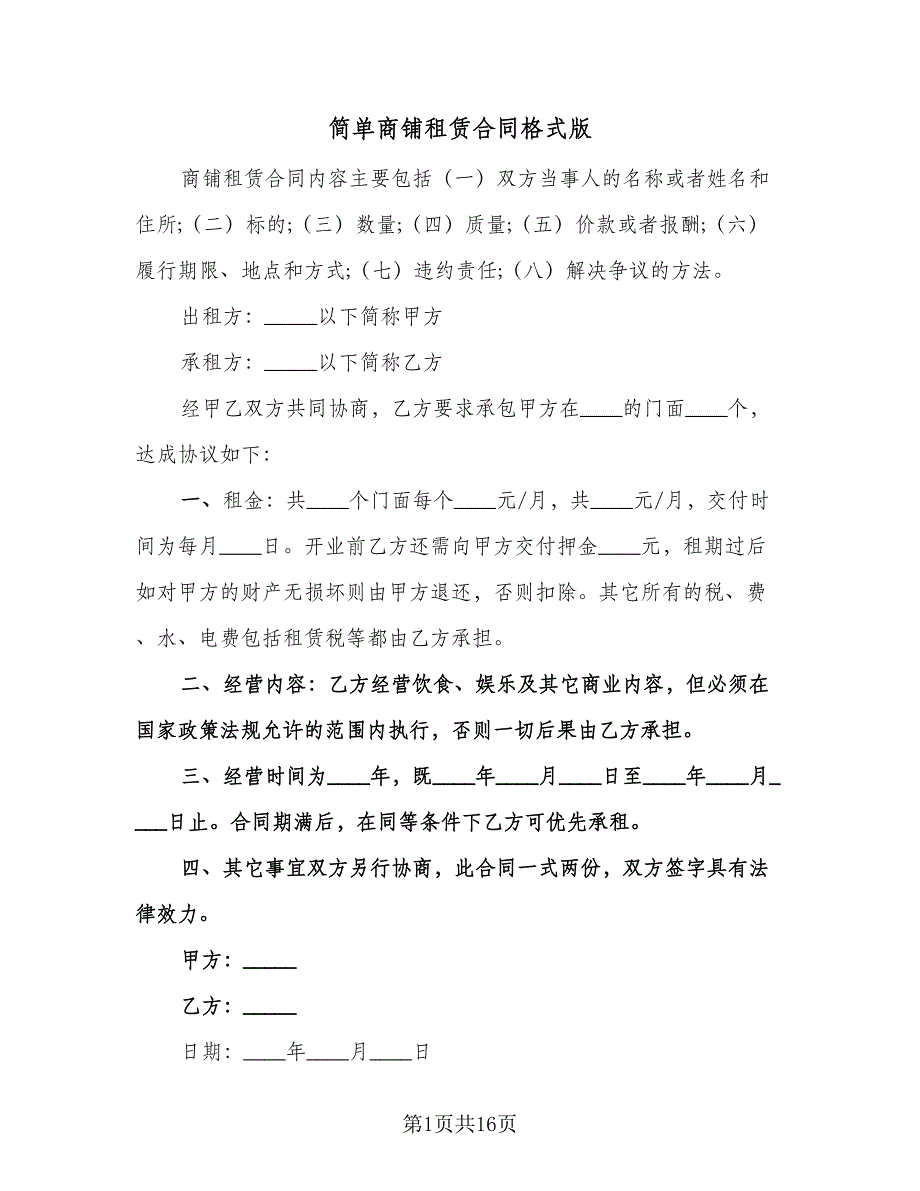 简单商铺租赁合同格式版
商铺租赁合同内容主要包括（一）双方当事人的名称或者姓名和
住所;（二）标的;（三）数量;（四）质量;（五）价款或者报酬;（六）
履行期限、地点和方式;（七）违约责任;（八）解决争议的方法。
出租方：_____以下简称甲方
承租方：_____以下简称乙方
经甲乙双方共同协商，乙方要求承包甲方在____的门面____个，
达成协议如下：
一、租金：共____个门面每个____元/月，共____元/月，交付时
间为每月____日。开业前乙方还需向甲方交付押金____元，租期过后
如对甲方的财产无损坏则由甲方退还，否则扣除。其它所有的税、费
、水、电费包括租赁税等都由乙方承担。
二、经营内容：乙方经营饮食、娱乐及其它商业内容，但必须在
国家政策法规允许的范围内执行，否则一切后果由乙方承担。
三、经营时间为____年，既____年____月____日至____年____月_
___日止。合同期满后，在同等条件下乙方可优先承租。
四、其它事宜双方另行协商，此合同一式两份，双方签字具有法
律效力。
甲方：_____
乙方：_____
日期：____年____月____日
第1页共16页